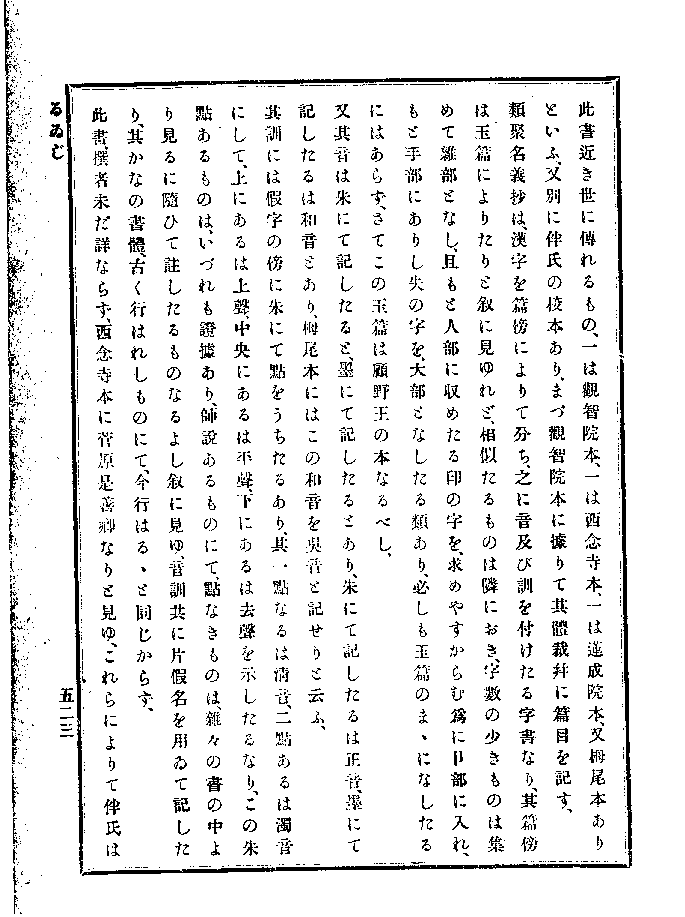 此書近き世に傳れるもの、一は觀智院本、一は西念寺本、一は蓮成院本、又栂尾本あり
といふ、又別に伴氏の校本あり、まづ觀智院本に據りて其體裁幷に篇目を記す、
類聚名義抄は、漢字を篇傍によりて分ち、之に音及び訓を付けたる字書なり、其篇傍
は玉篇によりたりと叙に見ゆれど、相似たるものは隣におき、字數の少きものは集
めて雜部となし、且もと人部に収めたる印の字を、求めやすからむ爲に卩部に入れ、
もと手部にありし失の字を、大部となしたる類あり、必しも玉篇のまゝになしたる
にはあらず、さてこの玉篇は顧野王の本なるべし、
又其音は朱にて記したると、墨にて記したるとあり、朱にて記したるは正音、墨にて
記したるは和音とあり、栂尾本にはこの和音を吳音と記せりと云ふ、
其訓には假字の傍に朱にて點をうちたるあり、其一點なるは淸音、二點あるは濁音
にして、上にあるは上聲、中央にあるは平聲、下にあるは去聲を示したるなり、この朱
點あるものは、いづれも證據あり、師說あるものにて、點なきものは、雜々の書の中よ
り見るに隨ひて註したるものなるよし叙に見ゆ、音訓共に片假名を用ゐて記した
り、其かなの書體、古く行はれしものにて、今行はるゝと同じからず、
此書、撰者未だ詳ならず、西念寺本に菅原是善卿なりと見ゆ、これらによりて伴氏は
るゐじ
五二三